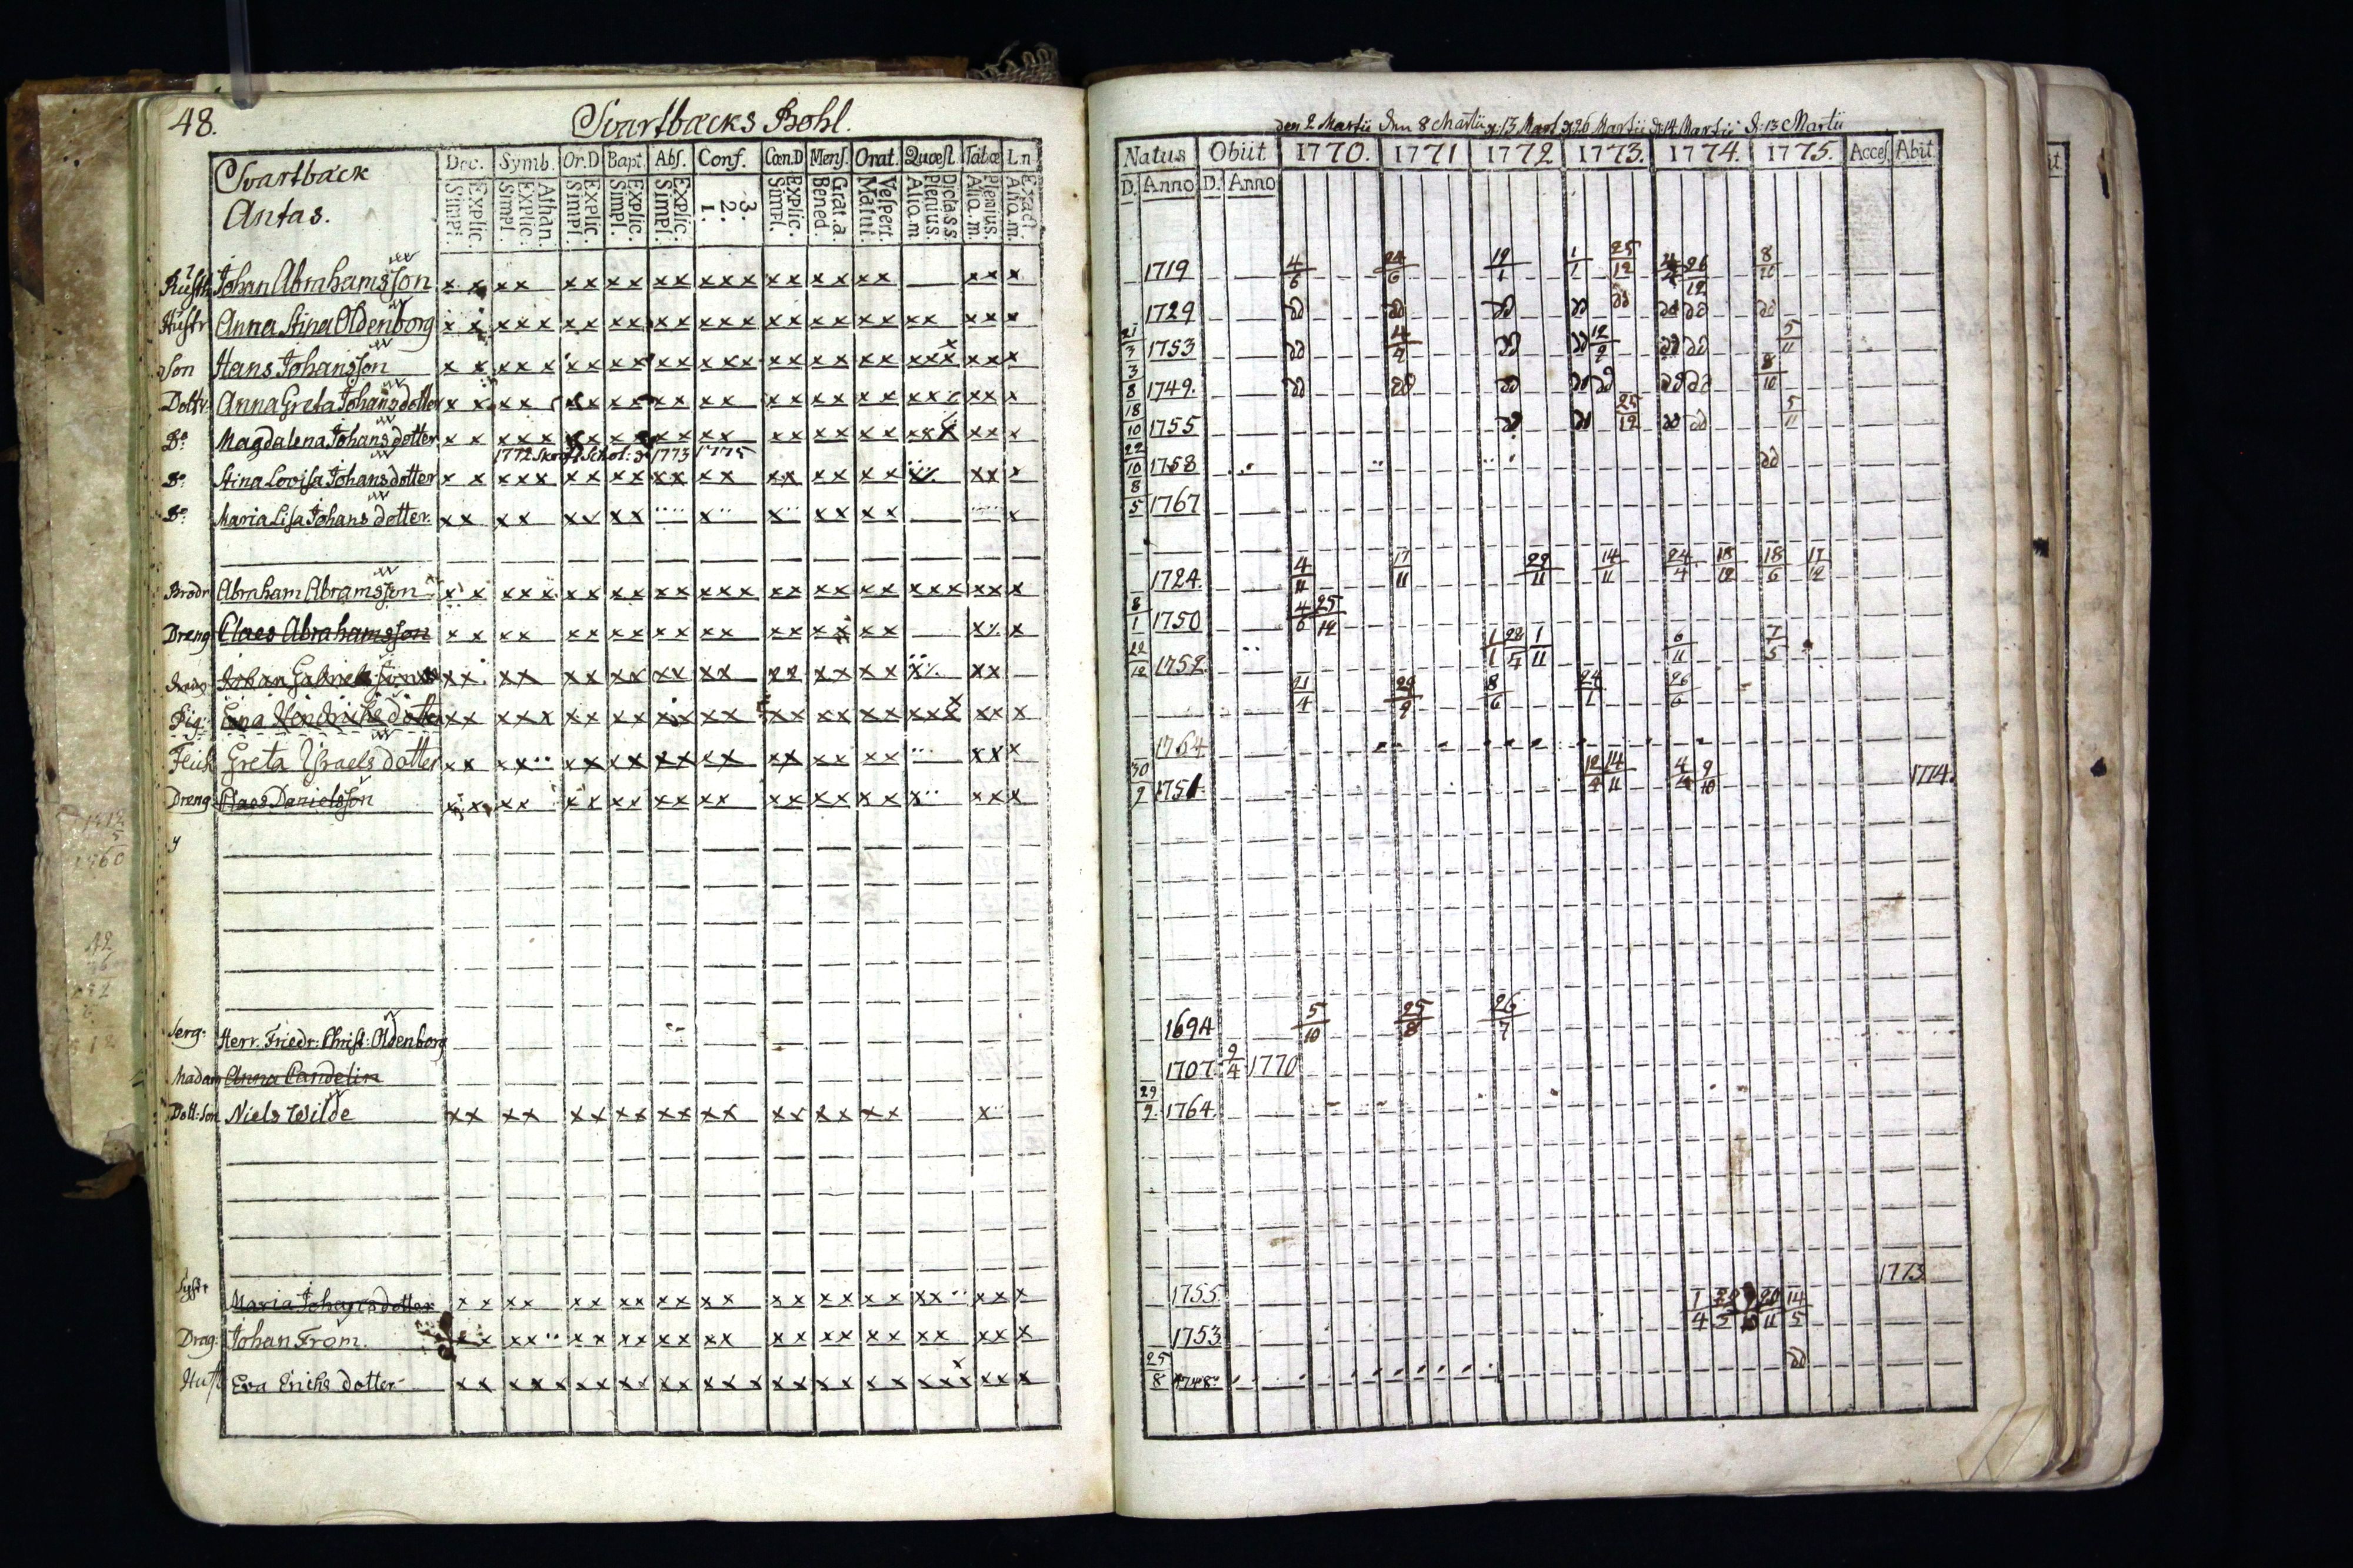 48.
Svartbäcks Bohl.
Svartbäck
Antas.
Dec. Symb. Or.D Bapt. Abs. Conf. Cœn.D Mens. Orat. Quæst. Tabæ Ln
Simpl. Explic. Simpl. Explic. Athan. Simpl. Explic. Simpl. Explic. Simpl. Explic. 1. 2. 3. Simpl. Explic. Bened. Grat. a. Matut. Vespert. Aliq. m Plenius. Dicta s.s. Aliq. m. Plenius. Aliq. m. Exact.
Johan Abrahamsson
Hustr Anna Stina Oldenborg
Son Hans Johansson
Dottr Anna Greta Johansdotter
D:o Magdalena Johansdotter
1772 1773 1775
D:o Stina Lovisa Johansdotter
D:o Maria Lisa Johansdotter.
Brodr Abraham Abramsson
Dreng Claes Abrahamsson
Johan Gabrielsson
Pig: Hendrichsdotter
Greta Israels dotter
Dreng Claes Danielsson
Serg: Herr. Friedr: Christ: Oldenborg
Madam Anna Candelin
Dott:son Niels Wilde
Maria Johansdotter
Drag: Johan From.
Hust Eva Erichs dotter
den 2 Martii den 8 Martii d: 13 Mart d: 26 Martii d: 14 Martii d: 13 Martii
Natus Obiit 1770. 1771 1772 1773. 1774. 1775. Acces. Abit.
D. Anno D. Anno
1719 4/6 24/6 19/1 1/1 25/12 26/12 8/10
1729 dd dd dd dd dd dd dd dd
21/3 1753 dd 14/7 dd dd 12/9 dd dd 5/11
3/8 1749. dd dd dd dd dd dd dd 8/10
18/10 1755 dd dd 25/12 dd dd 5/11
22/10 1758 dd
8/5 1767
1724. 4/11 17/11 29/11 14/11 24/4 18/12 18/6 17/12
8/1 1750 4/6 25/12
22/12 1752 1/1 28/5 1/11 6/11 7/5
21/4 29/9 8/6 24/1 26/6
1764
30/9 1751 12/4 14/11 4/4 9/10 1774.
1694 5/10 25/8 26/7
1707 9/4 1770
29/9 1764
1755 1773
1753 1/4 20/11 14/5
25/8 1748 dd